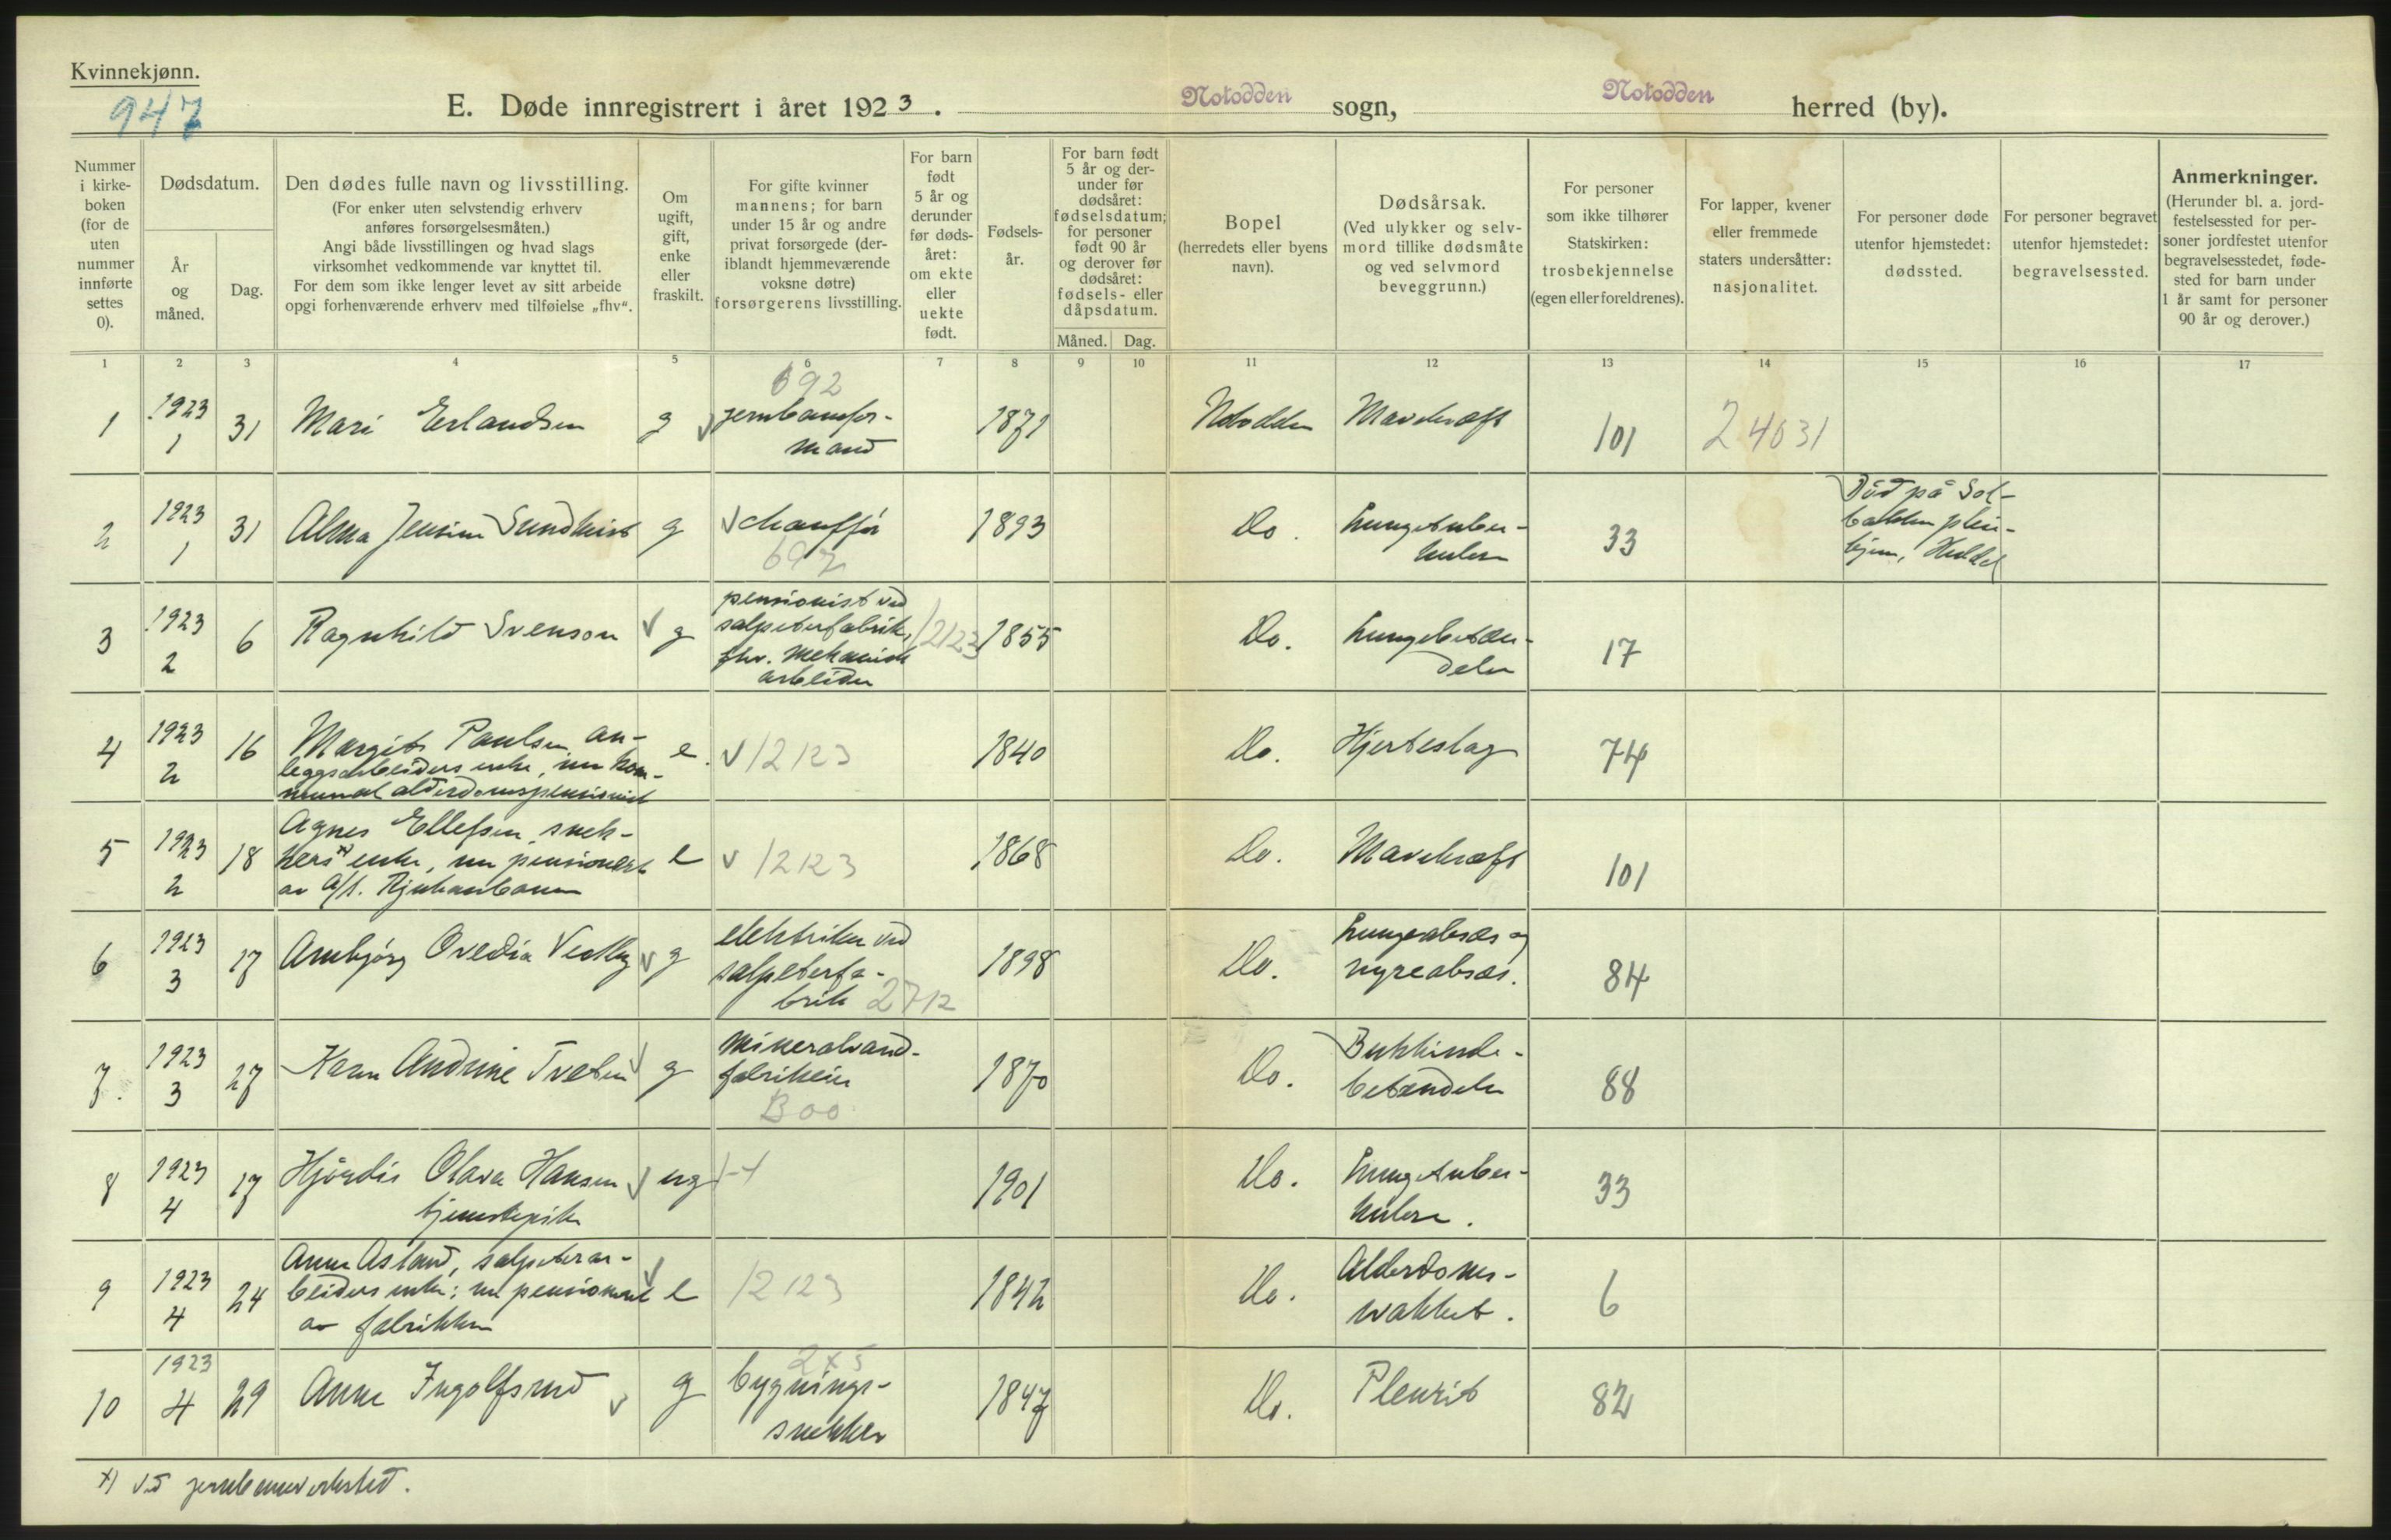 Kvinnekjønn.
947
E. Døde innregistrert i året 1923. Notodden sogn, Notodden herred (by).
Nummer
i kirke-
boken
(for de
uten
nummer
innførte
settes
0).
Dødsdatum.
År
og
måned.
Dag.
Den dødes fulle navn og livsstilling.
(For enker uten selvstendig erhverv
anføres forsørgelsesmåten.)
Angi både livsstillingen og hvad slags
virksomhet vedkommende var knyttet til.
For dem som ikke lenger levet av sitt arbeide
opgi forhenværende erhverv med tilføielse „fhv“.
Om
ugift,
gift,
enke
eller
fraskilt.
For gifte kvinner
mannens; for barn
under 15 år og andre
privat forsørgede (der-
iblandt hjemmeværende
voksne døtre)
forsørgerens livsstilling.
For barn
født
5 år og
derunder
før døds-
året:
om ekte
eller
uekte
født.
Fødsels-
år.
For barn født
5 år og der-
under før
dødsåret:
fødselsdatum;
for personer
født 90 år
og derover før
dødsåret:
fødsels- eller
dåpsdatum.
Måned. Dag.
Bopel
(herredets eller byens
navn).
Dødsårsak.
(Ved ulykker og selv-
mord tillike dødsmåte
og ved selvmord
beveggrunn.)
For personer
som ikke tilhører
Statskirken:
trosbekjennelse
(egen eller foreldrenes).
For lapper, kvener
eller fremmede
staters undersåtter:
nasjonalitet.
For personer døde
utenfor hjemstedet:
dødssted.
For personer begravet
utenfor hjemstedet:
begravelsessted.
Anmerkninger.
(Herunder bl. a. jord-
festelsessted for per-
soner jordfestet utenfor
begravelsesstedet, føde-
sted for barn under
1 år samt for personer
90 år og derover.)
1 2 3 4 5 6 7 8 9 10 11 12 13 14 15 16 17
1 1923 1 31 Mari Erlandsen g 692
jernbanefor-
mand
1871 Notodden Mavekræft 101 24031
2 1923 1 31 Alma Jensine Sundkvist g chauffør
697
1893 Do. Lungetuber-
kulose
33
Død på Sol-
bakken pleie-
hjem,
3 1923 2 6 Ragnhild Svenson g
pensionist ved
salpeterfabrik,
fhv. mekanisk
arbeider
12123 1855 Do. Lungebetæn-
delse
17
4 1923 2 16 Margit Paulsen, an-
leggsarbeiders enke, nu kom-
munal alderdomspensionist
e. 12123 1840 Do. Hjerteslag 74
5 1923 2 18 Agnes Ellefsen, snek-
kers x) enke, nu pensionert
av A/S. Rjukanbanen
e 12123 1868 Do. Mavekræft 101
6 1923 3 17 Arnbjørg Ovedia Vedby g
elektriker ved
salpeterfa-
brik 2712
1898 Do. Lungeabsæs og
nyreabsæs.
84
7. 1923 3 27 Karen Andrine Tveten g
mineralvand-
fabrikein
B00
1870 Do. Bukhinde-
betændelse
88
8 1923 4 17 Hjørdis Olava Hansen
tjenestepike
ug 1901 Do. Lungetuber-
kulose.
33
9 1923 4 24 Anne Åsland, salpeterar-
beiders enke; nu pensionert
av fabrikken
e 12123 1842 Do. Alderdoms-
svakhet.
6
10 1923 4 29 Anne Ingolfsrud g 2x5
bygnings-
snekker
1847 Do. Pleurit 82
x) ved jernbaneverksted.